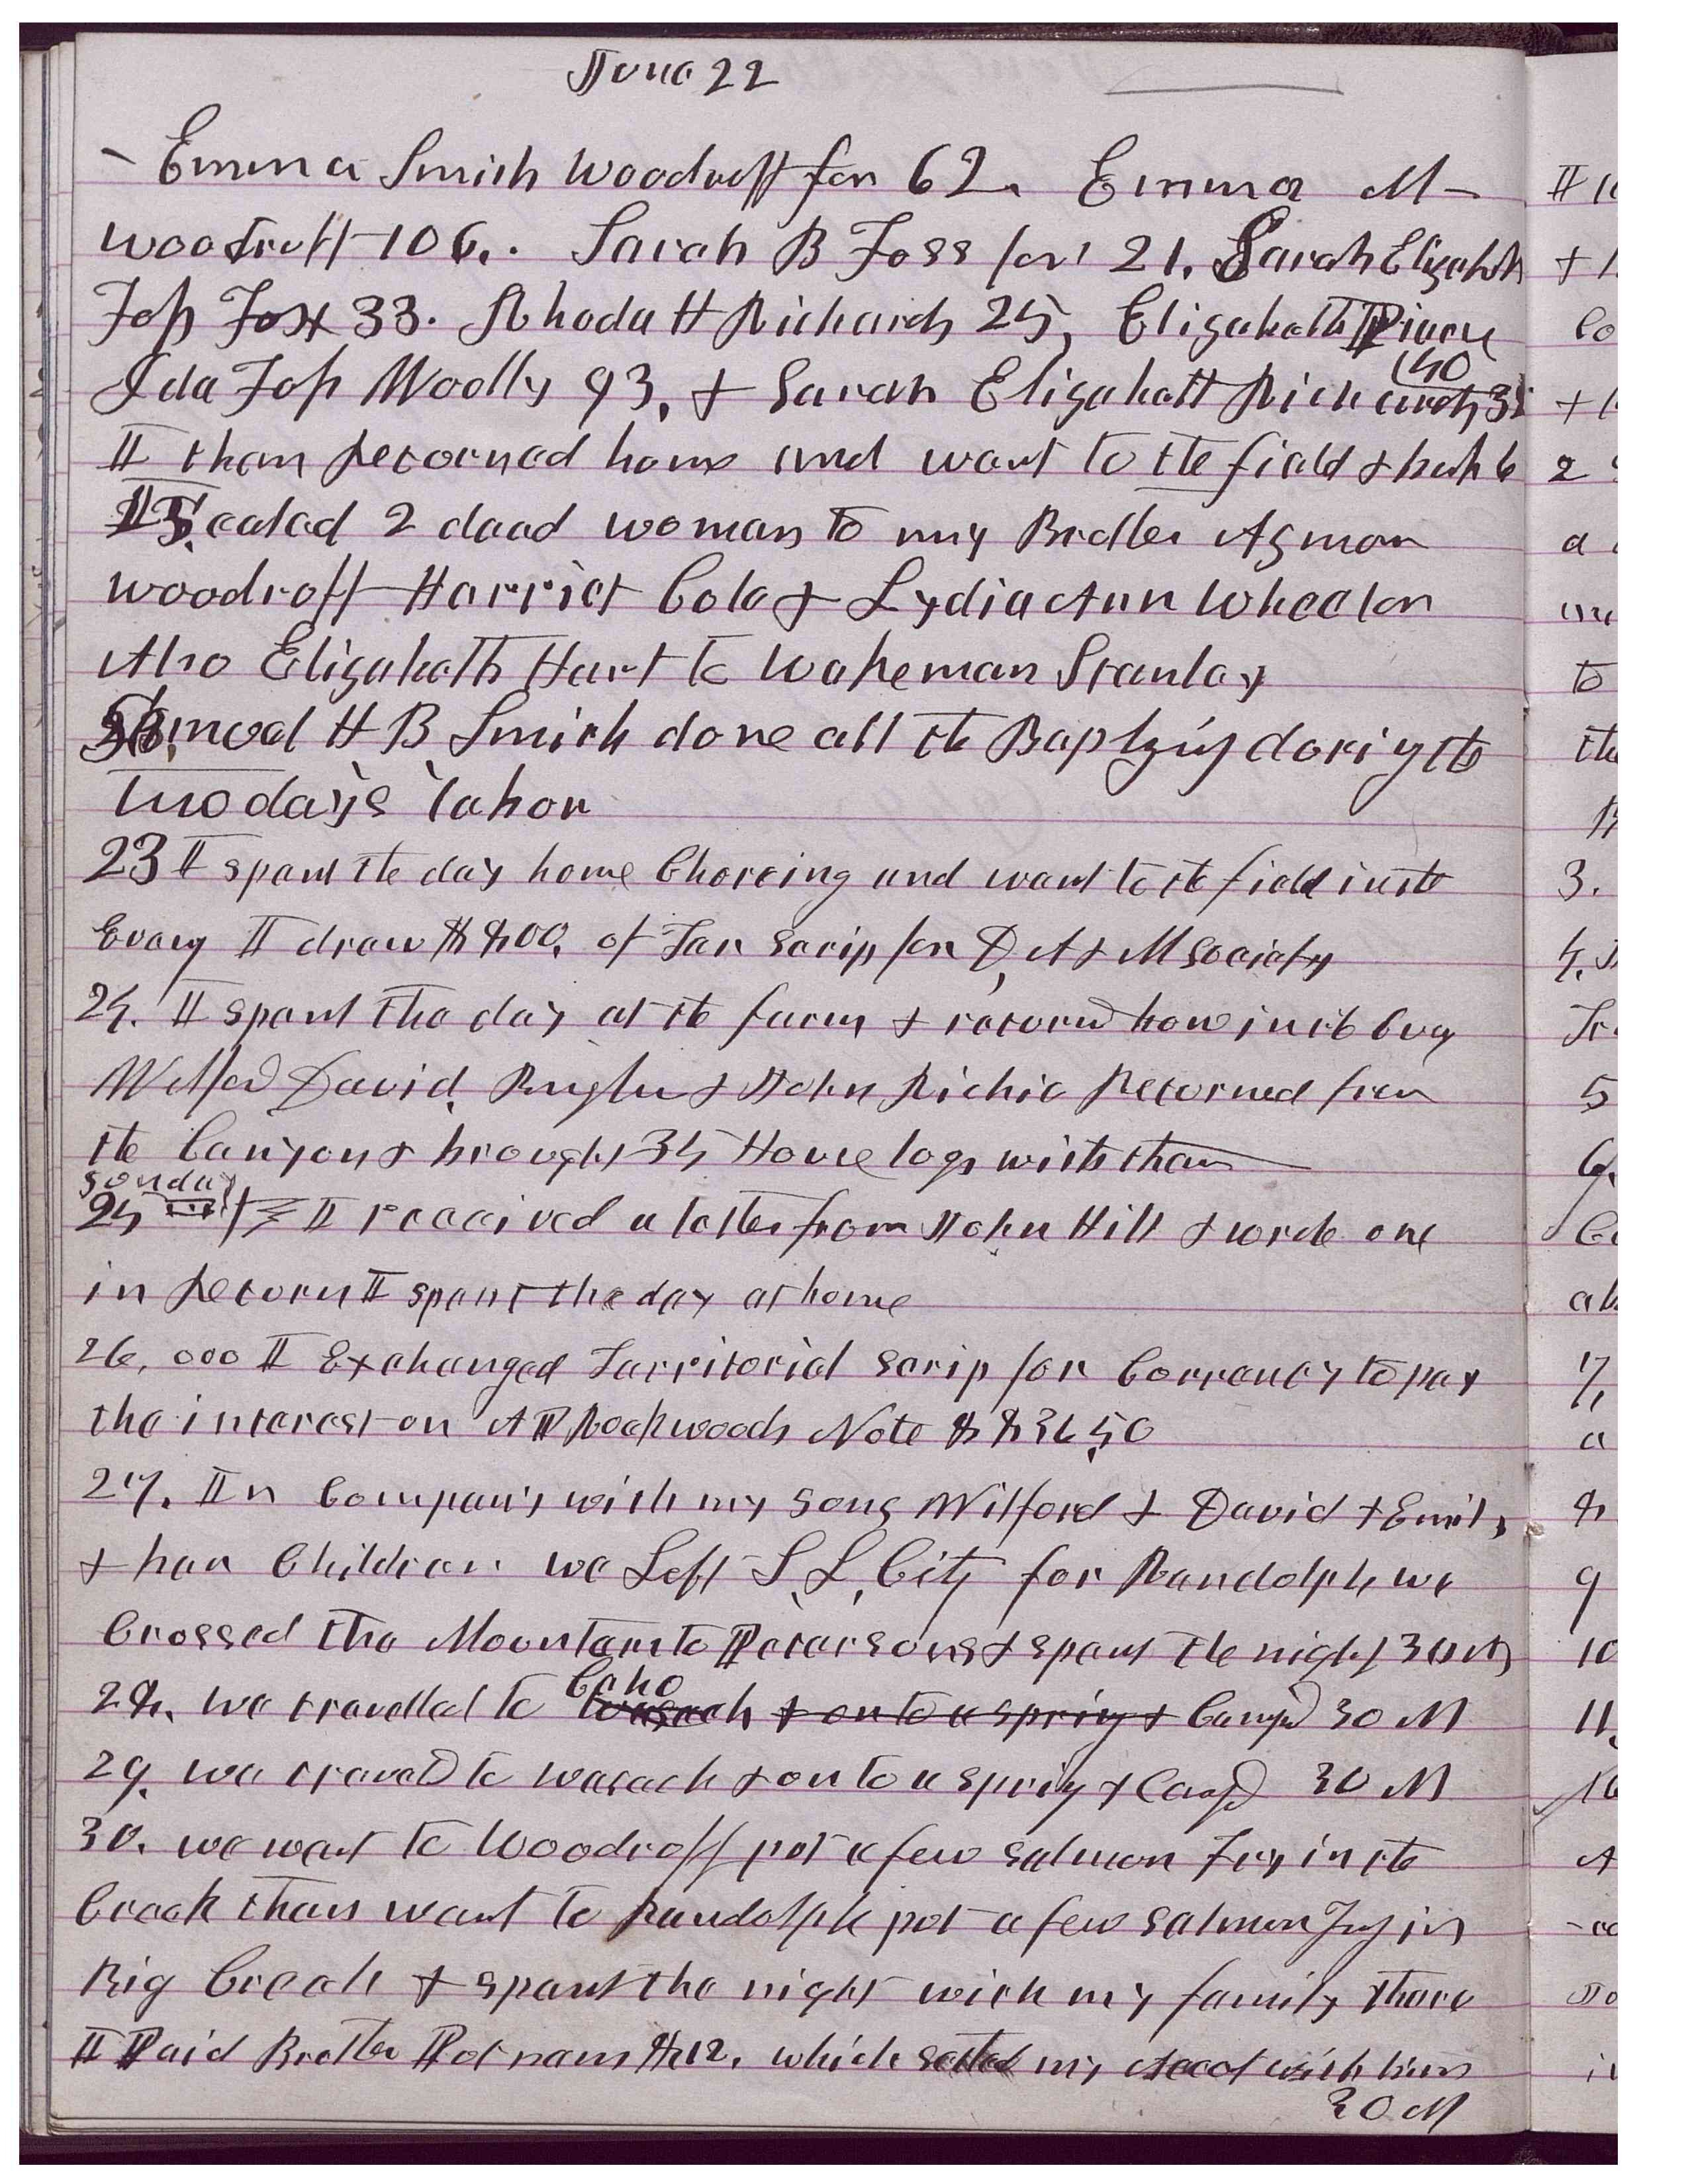 June 22
- Emma Smith Woodruff for 62. Emma M
Woodruff 106.. Sarah B Foss for 21. Sarah Elizabeth
Foss 33. Rhoda H Richards 25, Elizabeth
Ida Foss Woolly 93, & Sarah Elizabeth Richards 35
140
I then returned home and went to the field & back 6
I Sealed 2 dead women to my Brother Asmon
Woodruff Harriet Cole & Lydia Ann Wheeler
Also Elizabeth Hart to Wakeman Stanley
Samuel H B Smith done all the Baptizing during the
Two days labor
23 I spent the day home Choreing and went to the field in the
Evening I drew $800. of Ter Scrip for D, A & M Society
24. I spent the day at the farm & returnd home in the Eveg
Wilford David, & John Richie Returned from
the Canyon & brought 34 House logs with them
Sunday
25 I received a letter from John Hill & wrote one
in return I spent the day at home
26, 000 I Exchanged Territorial Scrip for Currency to pay
the interest on A P Rockwoods Note $ 36 50
27. In Company with my sons Wilford & David & Emily
& her Children we Left S, L, City for Randolph we
Crossed the Mountain to Petersons & spent the night 30 M
Echo
28. we travelled to Wasach & on to a spring & Campd 30 M
29. we traveld to Wasach & on to a spring & Campd 30 M
30. we went to Woodruff put a few salmon Fry in the
Creek then went to Randolph put a few salmon Fry in
Big Creek & spent the night with my family there
I Paid Brother Putnam $12. which settled my Acct with him
20 M